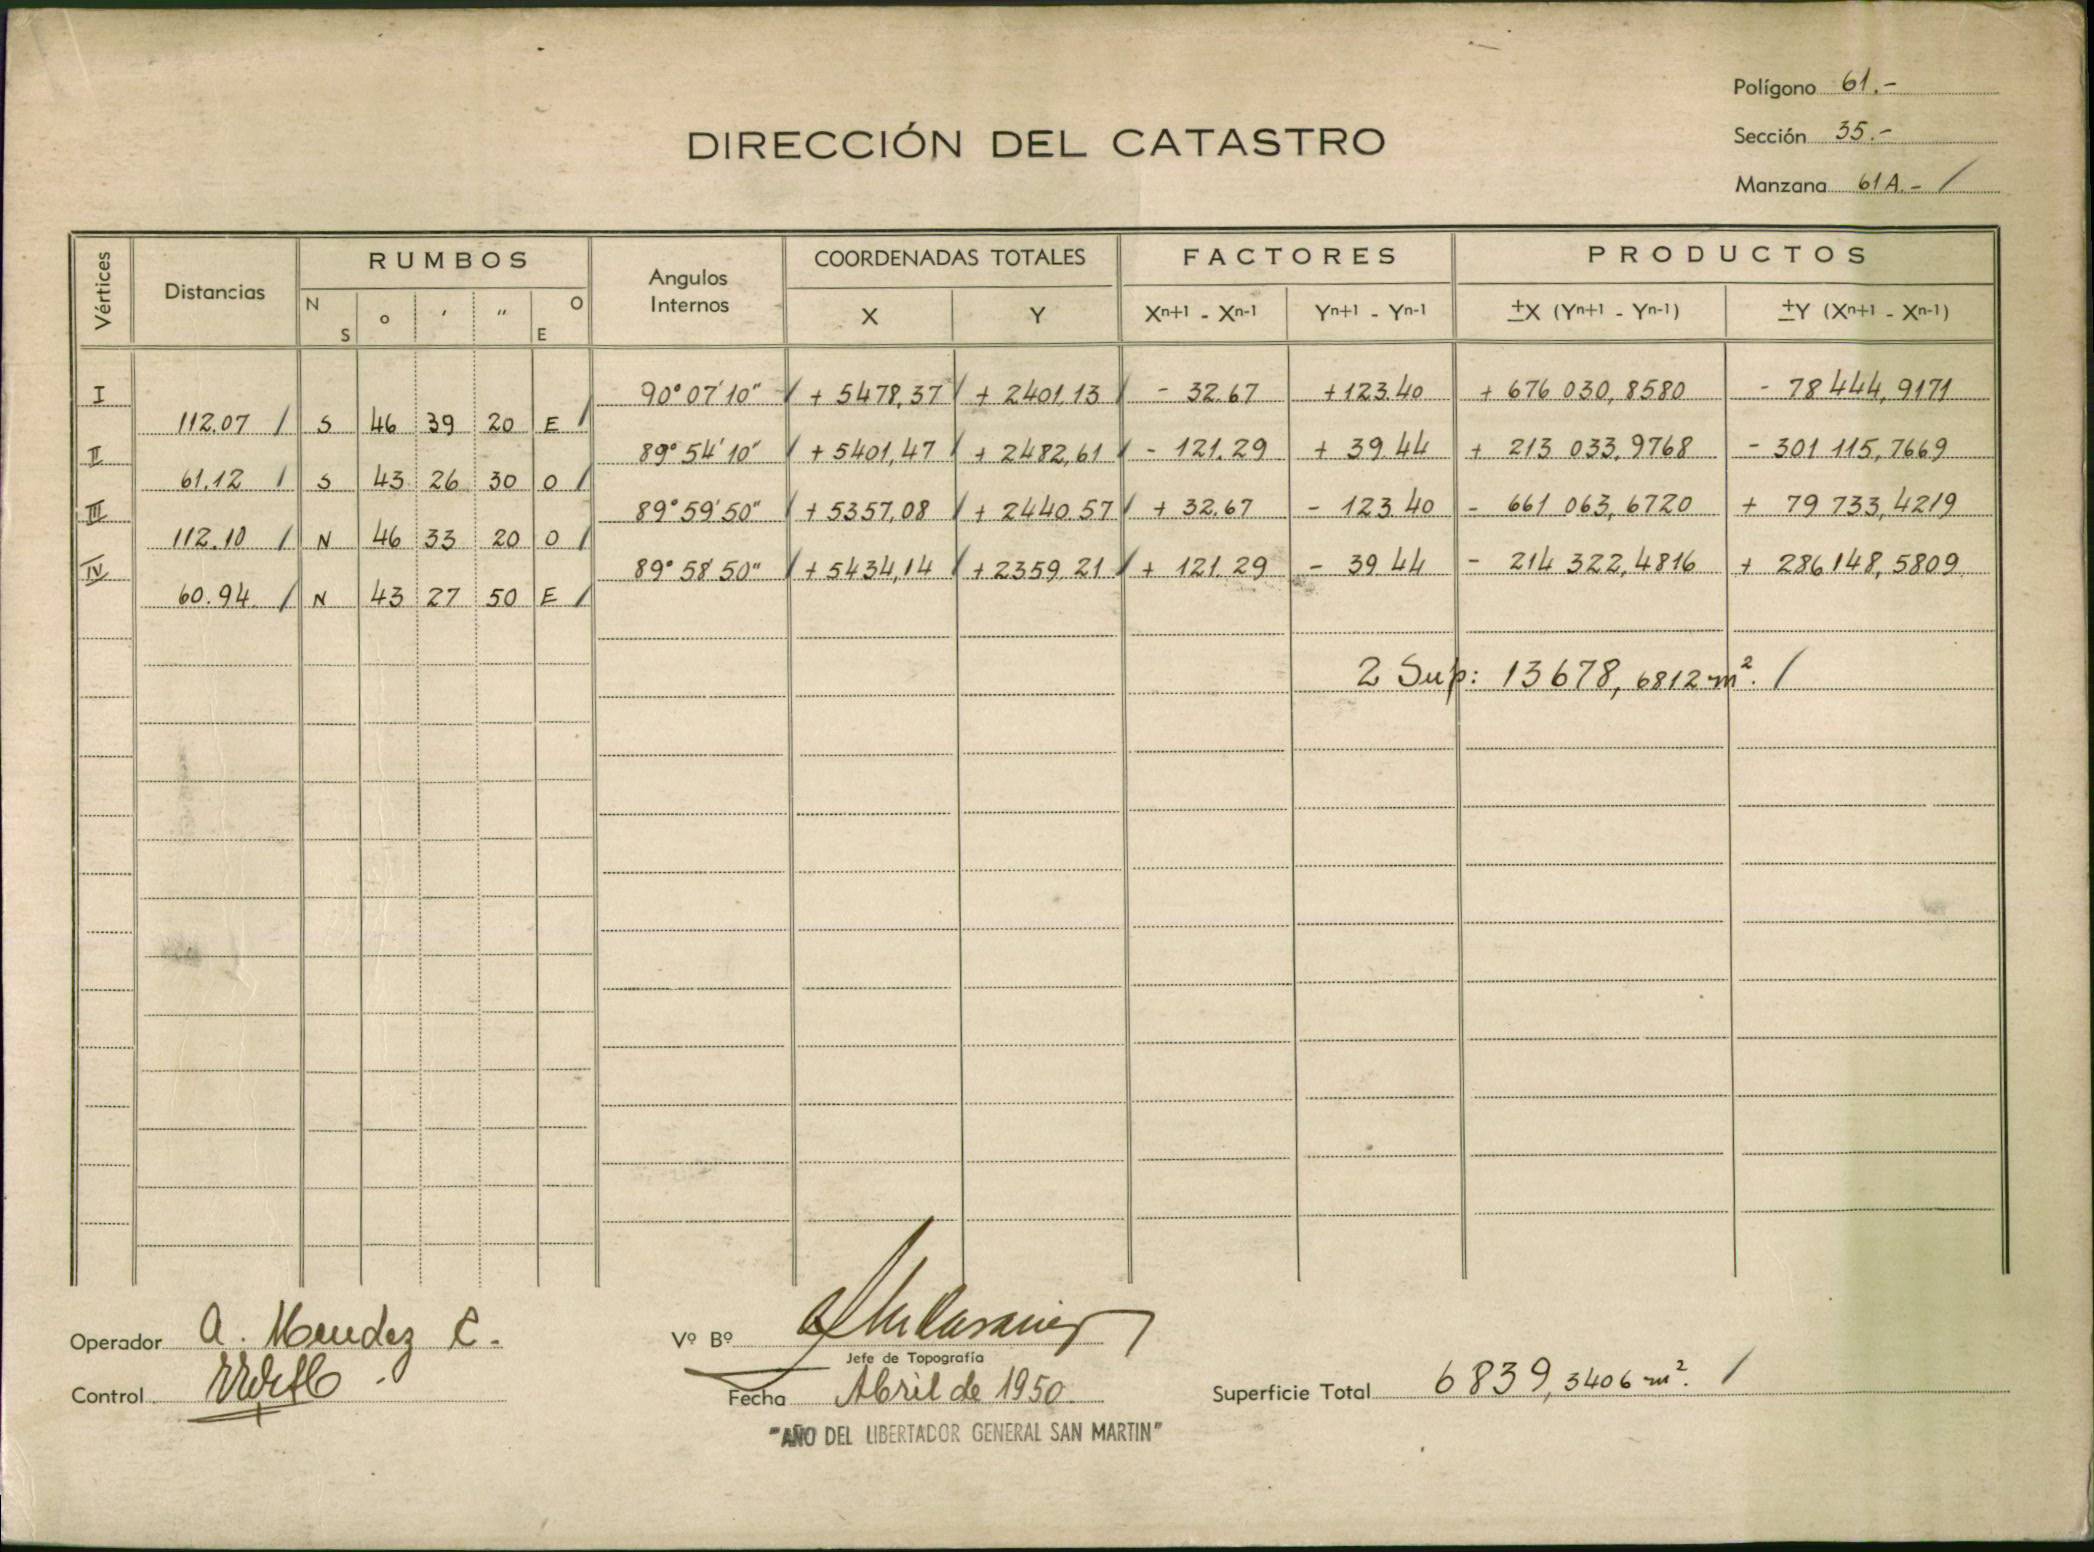 Polígono 61.-
DIRECCIÓN DEL CATASTRO
Sección 35.-
Manzana 61A.- /
Vértices Distancias RUMBOS Angulos Internos COORDENADAS TOTALES FACTORES PRODUCTOS
N S ° ' " O E X Y Xn+1 - Xn-1 Yn+1 - Yn-1 ±X (Yn+1 - Yn-1) ±Y (Xn+1 - Xn-1)
I 90° 07' 10" / + 5478,37 / + 2401,13 / - 32.67 + 123.40 + 676 030,8580 - 78 444,9171
112.07 / S 46 39 20 E /
II 89° 54' 10" / + 5401,47 / + 2482,61 / - 121.29 + 39 44 + 213 033,9768 - 301 115,7669
61.12 / S 43 26 30 O /
III 89° 59' 50" / + 5357,08 / + 2440.57 / + 32.67 - 123.40 - 661 063,6720 + 79 733,4219
112.10 / N 46 33 20 O /
IV 89° 58' 50" / + 5434,14 / + 2359 21 / + 121.29 - 39 44 - 214 322,4816 + 286 148,5809
60.94 / N 43 27 50 E /
2 Sup: 13678,6812 m². /
Operador A. Mendez C.
Vº Bº
Jefe de Topografía
Control
Fecha Abril de 1950
Superficie Total 6839,3406 m². /
"AÑO DEL LIBERTADOR GENERAL SAN MARTIN"